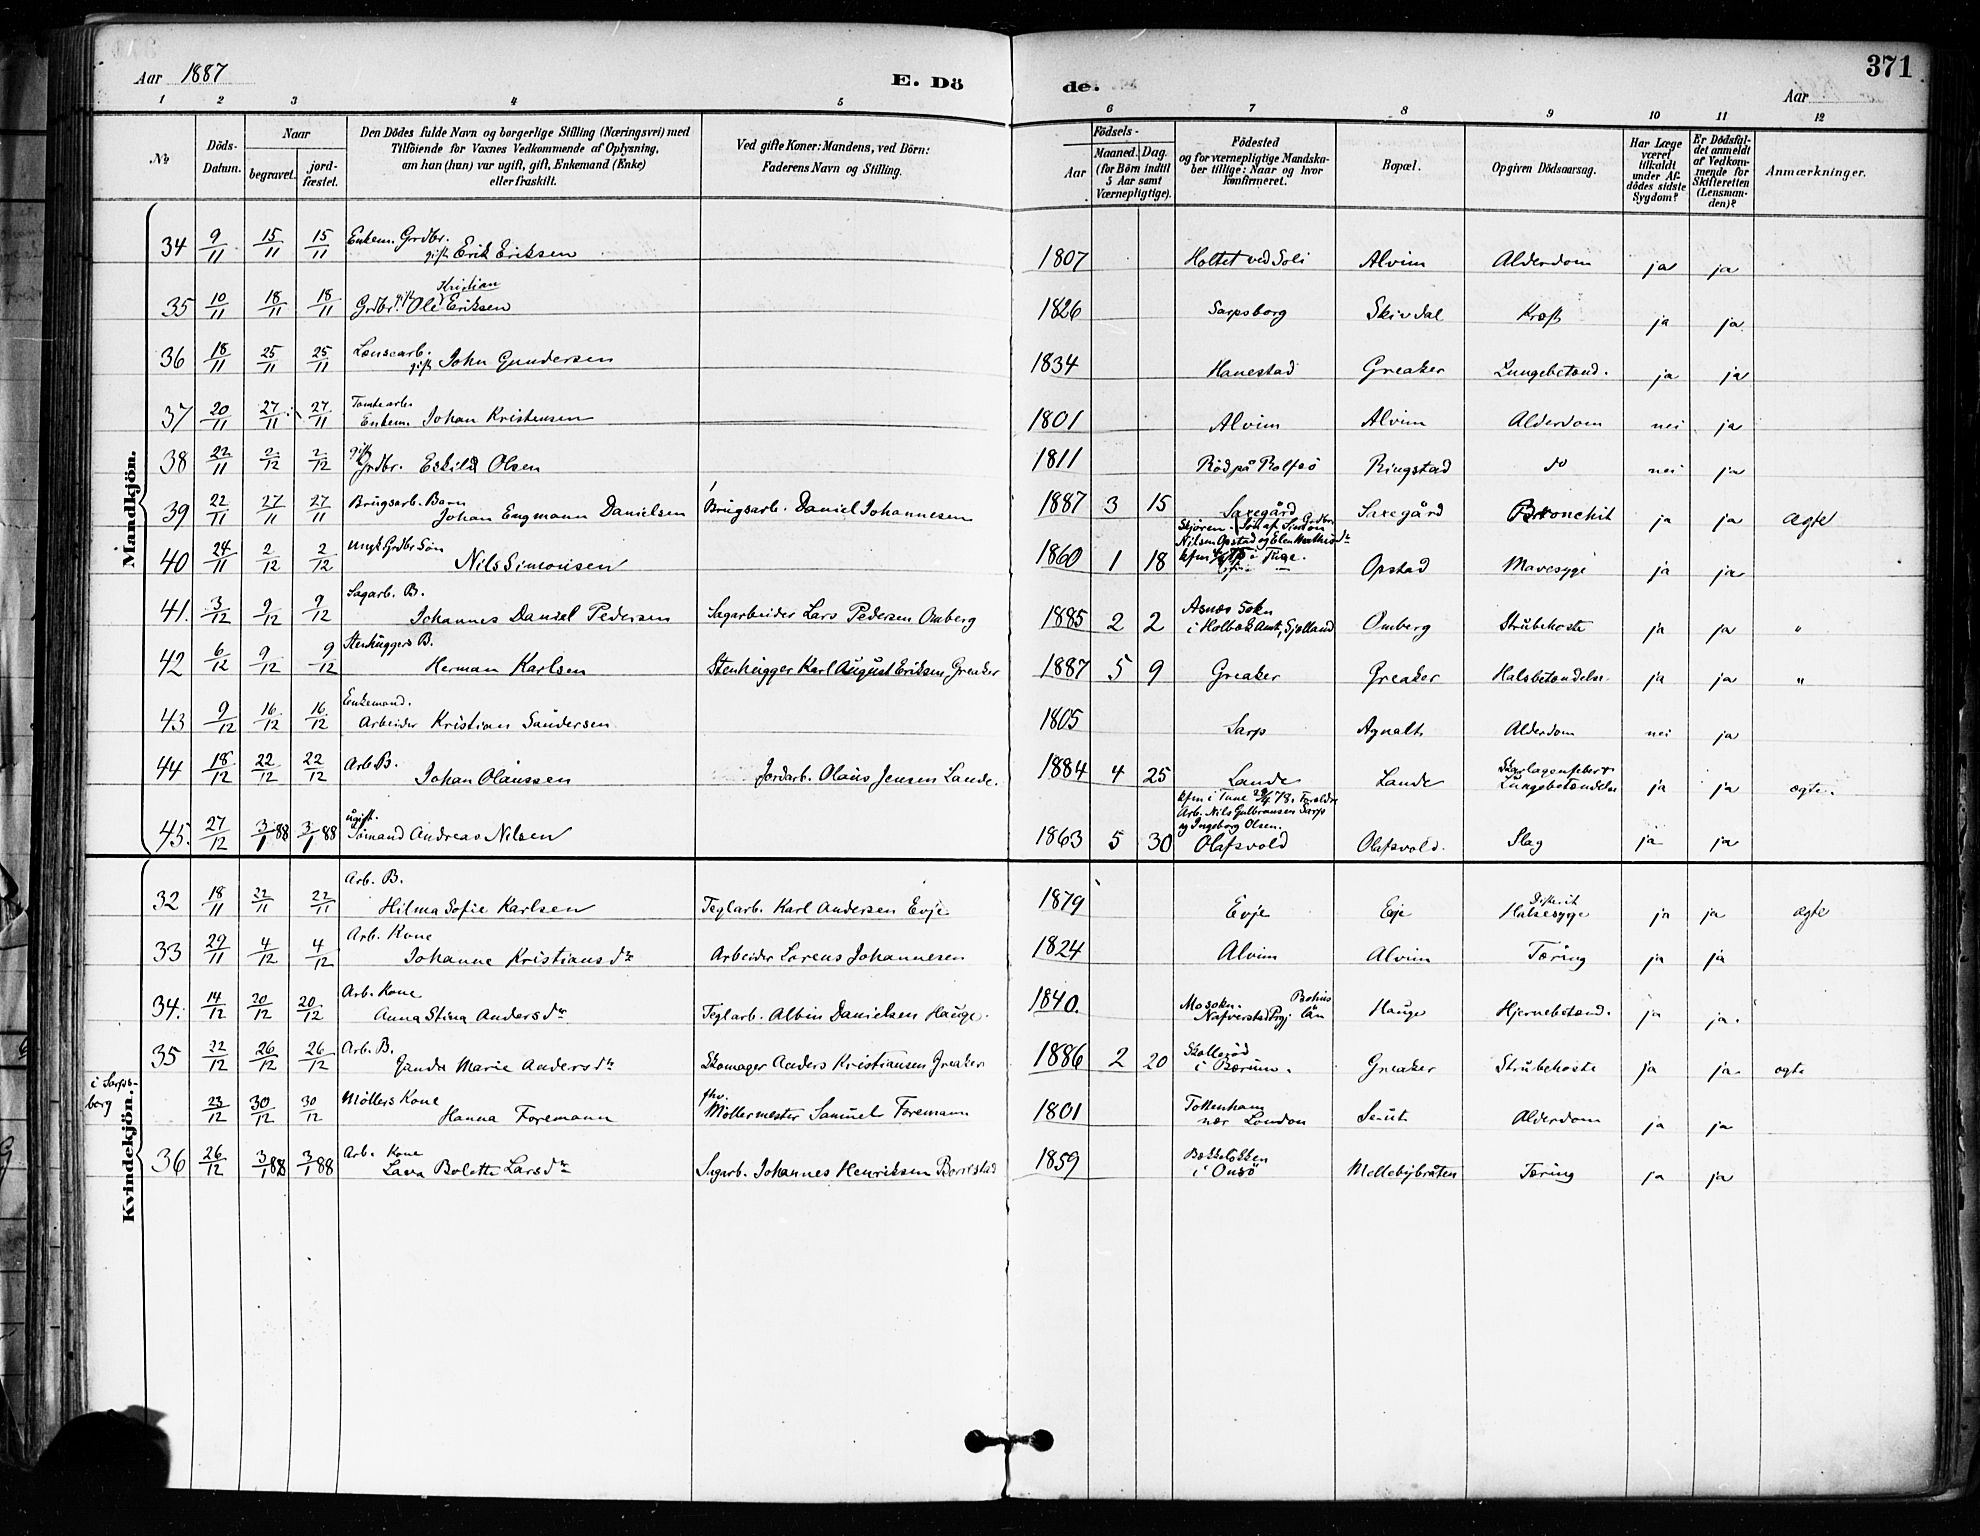 371
Aar 1887
E. Döde.
Aar
1 2 3 4 5 6 7 8 9 10 11 12
No
Döds-Datum.
Naar
begravet.
jord-fæstet.
Den Dödes fulde Navn og borgerlige Stilling (Næringsvei) med
Tilföiende for Voxnes Vedkommende af Oplysning,
om han (hun) var ugift, gift, Enkemand (Enke)
eller fraskilt.
Ved gifte Koner: Mandens, ved Börn:
Faderens Navn og Stilling.
Födsels-
Aar
Maaned. Dag.
(for Börn indtil
5 Aar samt
Værnepligtige).
Födested
og for værnepligtige Mandska-
ber tillige: Naar og hvor
konfirmeret.
Bopæl.
Opgiven Dödsaarsag.
Har Læge
været
tilkaldt
under Af-
dödes sidste
Sygdom?
Er Dödsfal-
det anmeldt
af Vedkom-
mende for
Skifteretten
(Lensman-
den)?
Anmærkninger.
Mandkjön.
34 9/11 15/11 15/11 Enkem. Grdbr. gift Erik Eriksen 1807 Holtet ved Soli Alvim Alderdom ja ja
35 10/11 18/11 18/11 Grdbr. gift Ole Kristian Eriksen 1826 Sarpsborg Skivdal Kræft ja ja
36 18/11 25/11 25/11 Lensearb. gift John Gundersen 1834 Hanestad Greaker Lungebetænd. ja ja
37 20/11 27/11 27/11 Tomtearb. Enkem. Johan Kristensen 1801 Alvim Alvim Alderdom nei ja
38 22/11 2/12 2/12 gift Grdbr. Eskild Olsen 1811 Röd på Rolfsö Ringstad do nei ja
39 22/11 27/11 27/11 Brugsarb. Barn Johan Engmann Danielsen Brugsarb. Daniel Johannesen 1887 3 15 Saxegård Saxegård Bronchit ja ja ægte
40 24/11 2/12 2/12 ungk Grdbr Sön Nils Simonsen 1860 1 18 Skjören. Sön af Grdbr Simon Nilsen Opstad og Elen kfm i Tune. Opstad Mavesyge ja ja
41. 3/12 9/12 9/12 Sagarb. B. Johannes Daniel Pedersen Sagarbeider Lars Pedersen Omberg 1885 2 2 Asnæs Sokn i Holbæk Amt, Sjælland Omberg Strubehoste ja ja "
42 6/12 9/12 9/12 Stenhuggers B. Herman Karlsen Stenhugger Karl August Eriksen, Greaker 1887 5 9 Greaker Greaker Halsbetændelse ja ja "
43 9/12 16/12 16/12 Enkemand. Arbeider Kristian Sandersen 1805 Sarp Agnalt Alderdom nei ja
44 18/12 22/12 22/12 Arb. B. Johan Olaussen Jordarb. Olaus Jensen Lande. 1884 4 25 Lande Lande Skarlagensfeber + Lungebetændelse ja ja ægte.
45. 27/12 3/1 88 3/1 88 ugift. Sömand Andreas Nilsen 1863 5 30 kfm i Tune 78. Forældre Arb. Nils Gulbransen Sarp og Ingeborg Olsen. Olafsvold Olafsvold. Slag ja ja
Kvindekjön.
32 18/11 22/11 22/11 Arb. B. Hilma Sofie Karlsen Teglarb. Karl Andersen Evje 1879 Evje Evje Difterit Halsesyge ja ja ægte
33 29/11 4/12 4/12 Arb. Kone Johanne Kristiansdr Arbeider Lorens Johannesen 1824 Alvim Alvim Tæring ja ja
34. 14/12 20/12 20/12 Arb. Kone Anna Stina Andersdr Teglarb. Albin Danielsen Hauge. 1840. Mo sokn. Nafverstad Prgj Bohus län Hauge Hjernebetænd. ja ja.
35 22/12 26/12 26/12 Arb. B. Ganda Marie Andersdr Skomager Anders Kristiansen Greaker 1886 2 20 Skolleröd i Bærum. Greaker Strubehoste ja ja. ægte
i Sarpsborg 23/12 30/12 30/12 Möllers Kone Hanna Foremann fhv. Möllermester Samuel Foremann 1801 Tottenham nær London Alderdom ja ja
36 26/12 3/1 88 3/1 88 Arb. Kone Lava Bolette Larsdr Sagarb. Johannes Henriksen Borrestad 1859 Bækkelökken i Onsö Mellebybråten Tæring ja ja